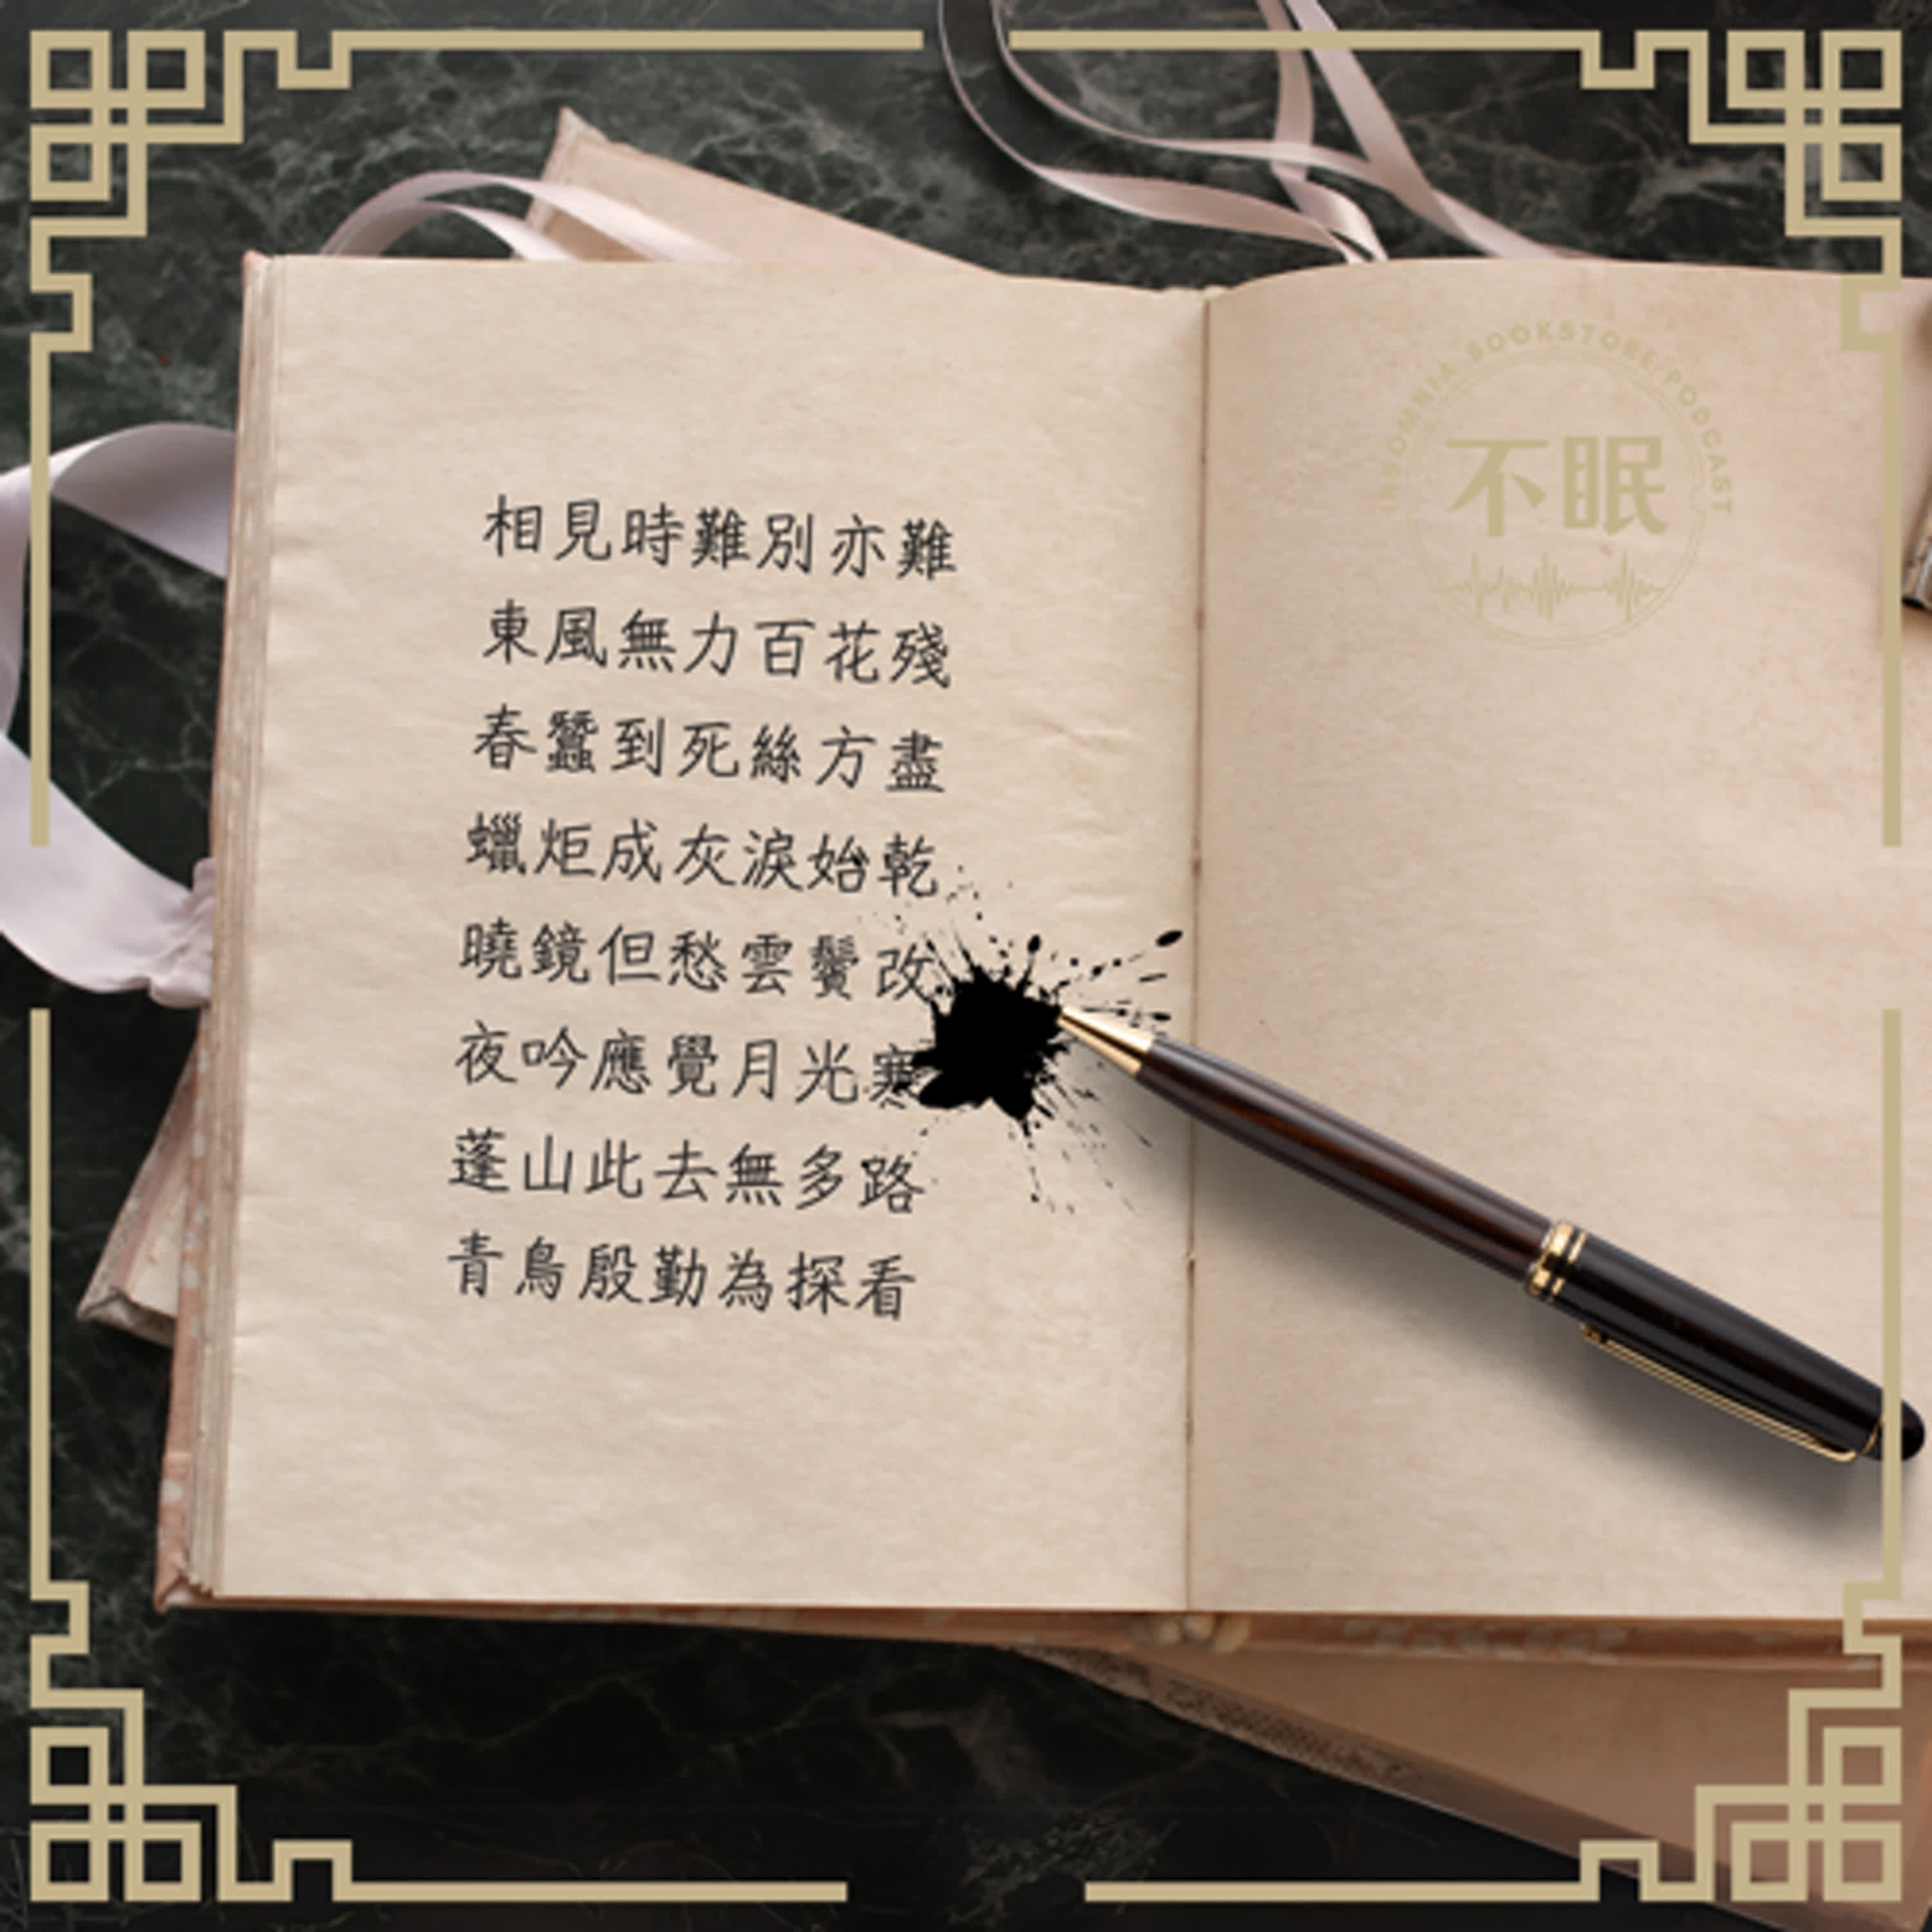 相見時難別亦難
東風無力百花殘
春蠶到死絲方盡
蠟炬成灰淚始乾
曉鏡但愁雲鬢改
夜吟應覺月光寒
蓬山此去無多路
青鳥殷勤為探看
INSOMNIA BOOKSTORE PODCAST
不眠